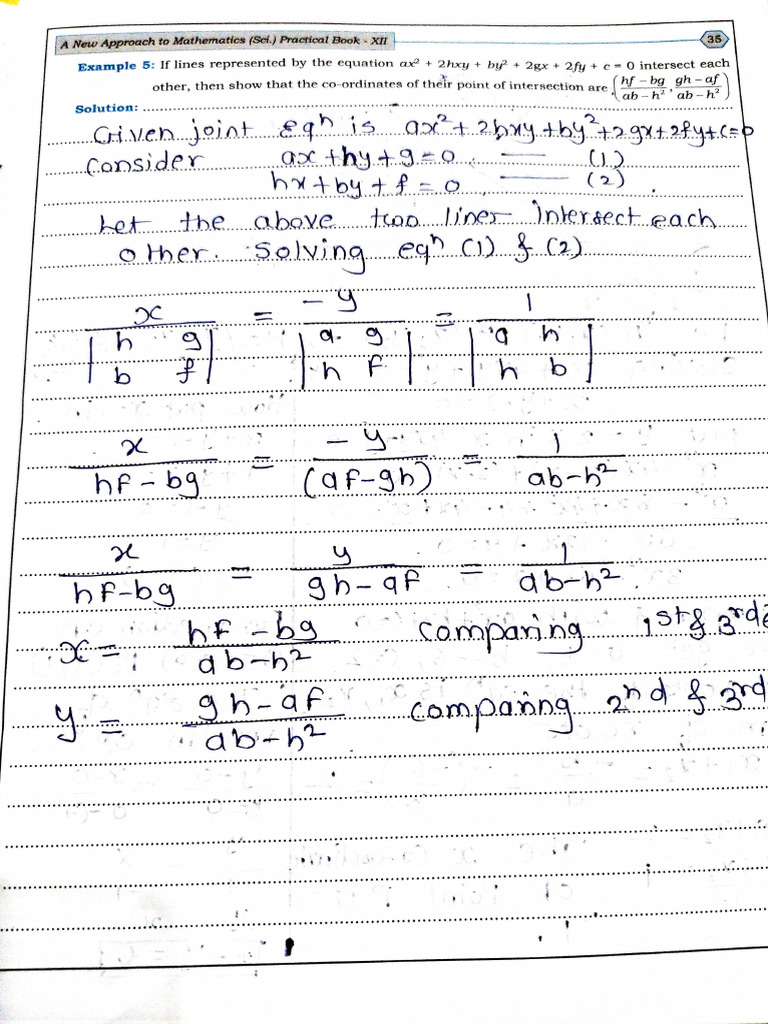 A New Approach to Mathematics (Sci.) Practical Book - XII 35
Example 5: If lines represented by the equation ax² + 2hxy + by² + 2gx + 2fy + c = 0 intersect each
other, then show that the co-ordinates of their point of intersection are (hf – bg / ab – h², gh – af / ab – h²)
Solution:
Given joint eqⁿ is ax² + 2hxy + by² + 2gx + 2fy + c = 0
Consider ax + hy + g = 0 —— (1)
hx + by + f = 0 —— (2)
Let the above two lines intersect each
other. Solving eqⁿ (1) & (2)
x / |h g; b f| = -y / |a g; h f| = 1 / |a h; h b|
x / hf - bg = -y / (af - gh) = 1 / ab - h²
x / hf - bg = y / gh - af = 1 / ab - h²
x = hf - bg / ab - h² comparing 1st & 3rd
y = gh - af / ab - h² comparing 2nd & 3rd